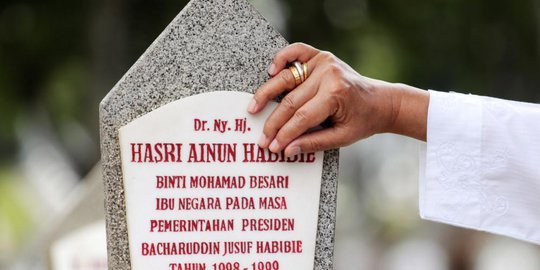 Dr. Ny. Hj.
HASRI AINUN HABIBIE
BINTI MOHAMAD BESARI
IBU NEGARA PADA MASA
PEMERINTAHAN PRESIDEN
BACHARUDDIN JUSUF HABIBIE
TAHUN 1998 - 1999